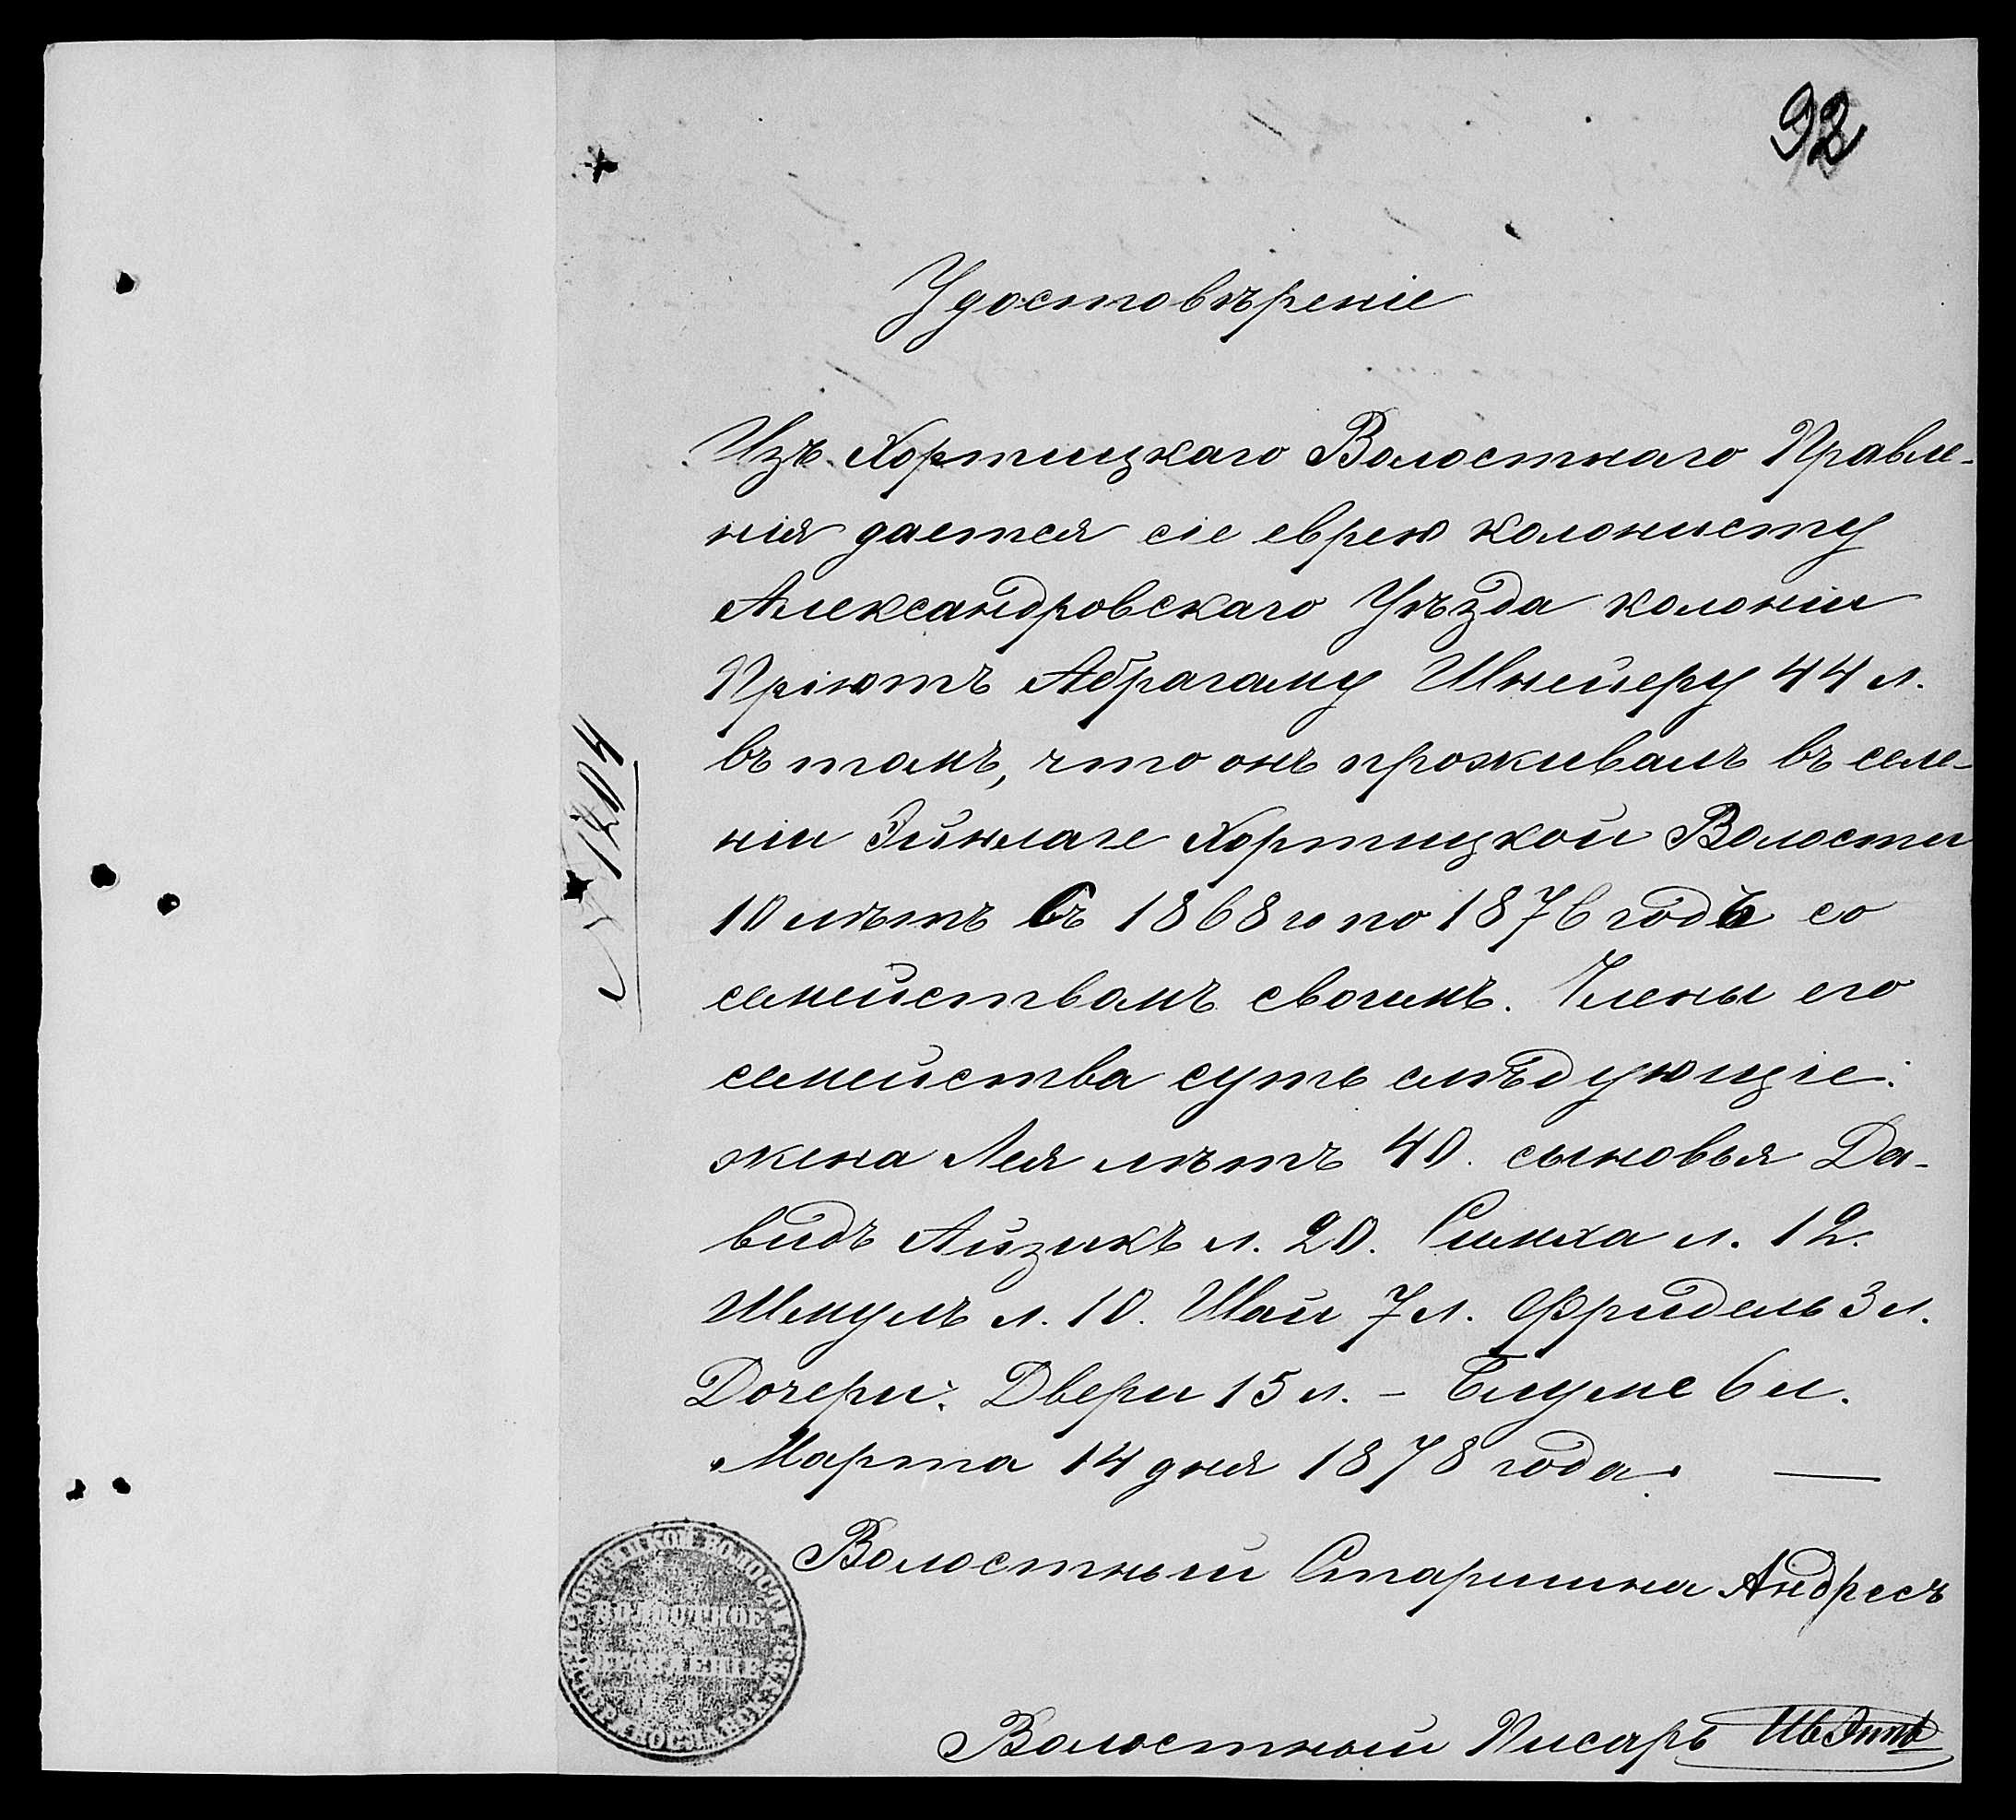 92
Удостовѣреніе
Изъ Хортицкаго Волостнаго Правле-
нія дается сіе еврею колонисту
Александровскаго Уѣзда колоніи
Пріютъ Абрагаму Шнейеру 44 л.
въ томъ, что онъ проживалъ въ селе-
ніи Эйнлаге Хортицкой Волости
10 лѣтъ съ 1868 го по 1876 годъ со
семействомъ своимъ. Члены его
семейства суть слѣдующіе:
жена Лея лѣтъ 40. сыновья Да-
видъ Айзикъ л. 20. Симха л. 12.
Шмулъ л. 10. Шай 7 л. Фридель 3 л.
Дочери: Двери 15 л. - Блуме 6 л.
Марта 14 дня 1878 года. —
Волостный Старшина Андресъ
Волостный Писарь
№ 1204
ВОЛОСТНОЕ
ПРАВЛЕНІЕ